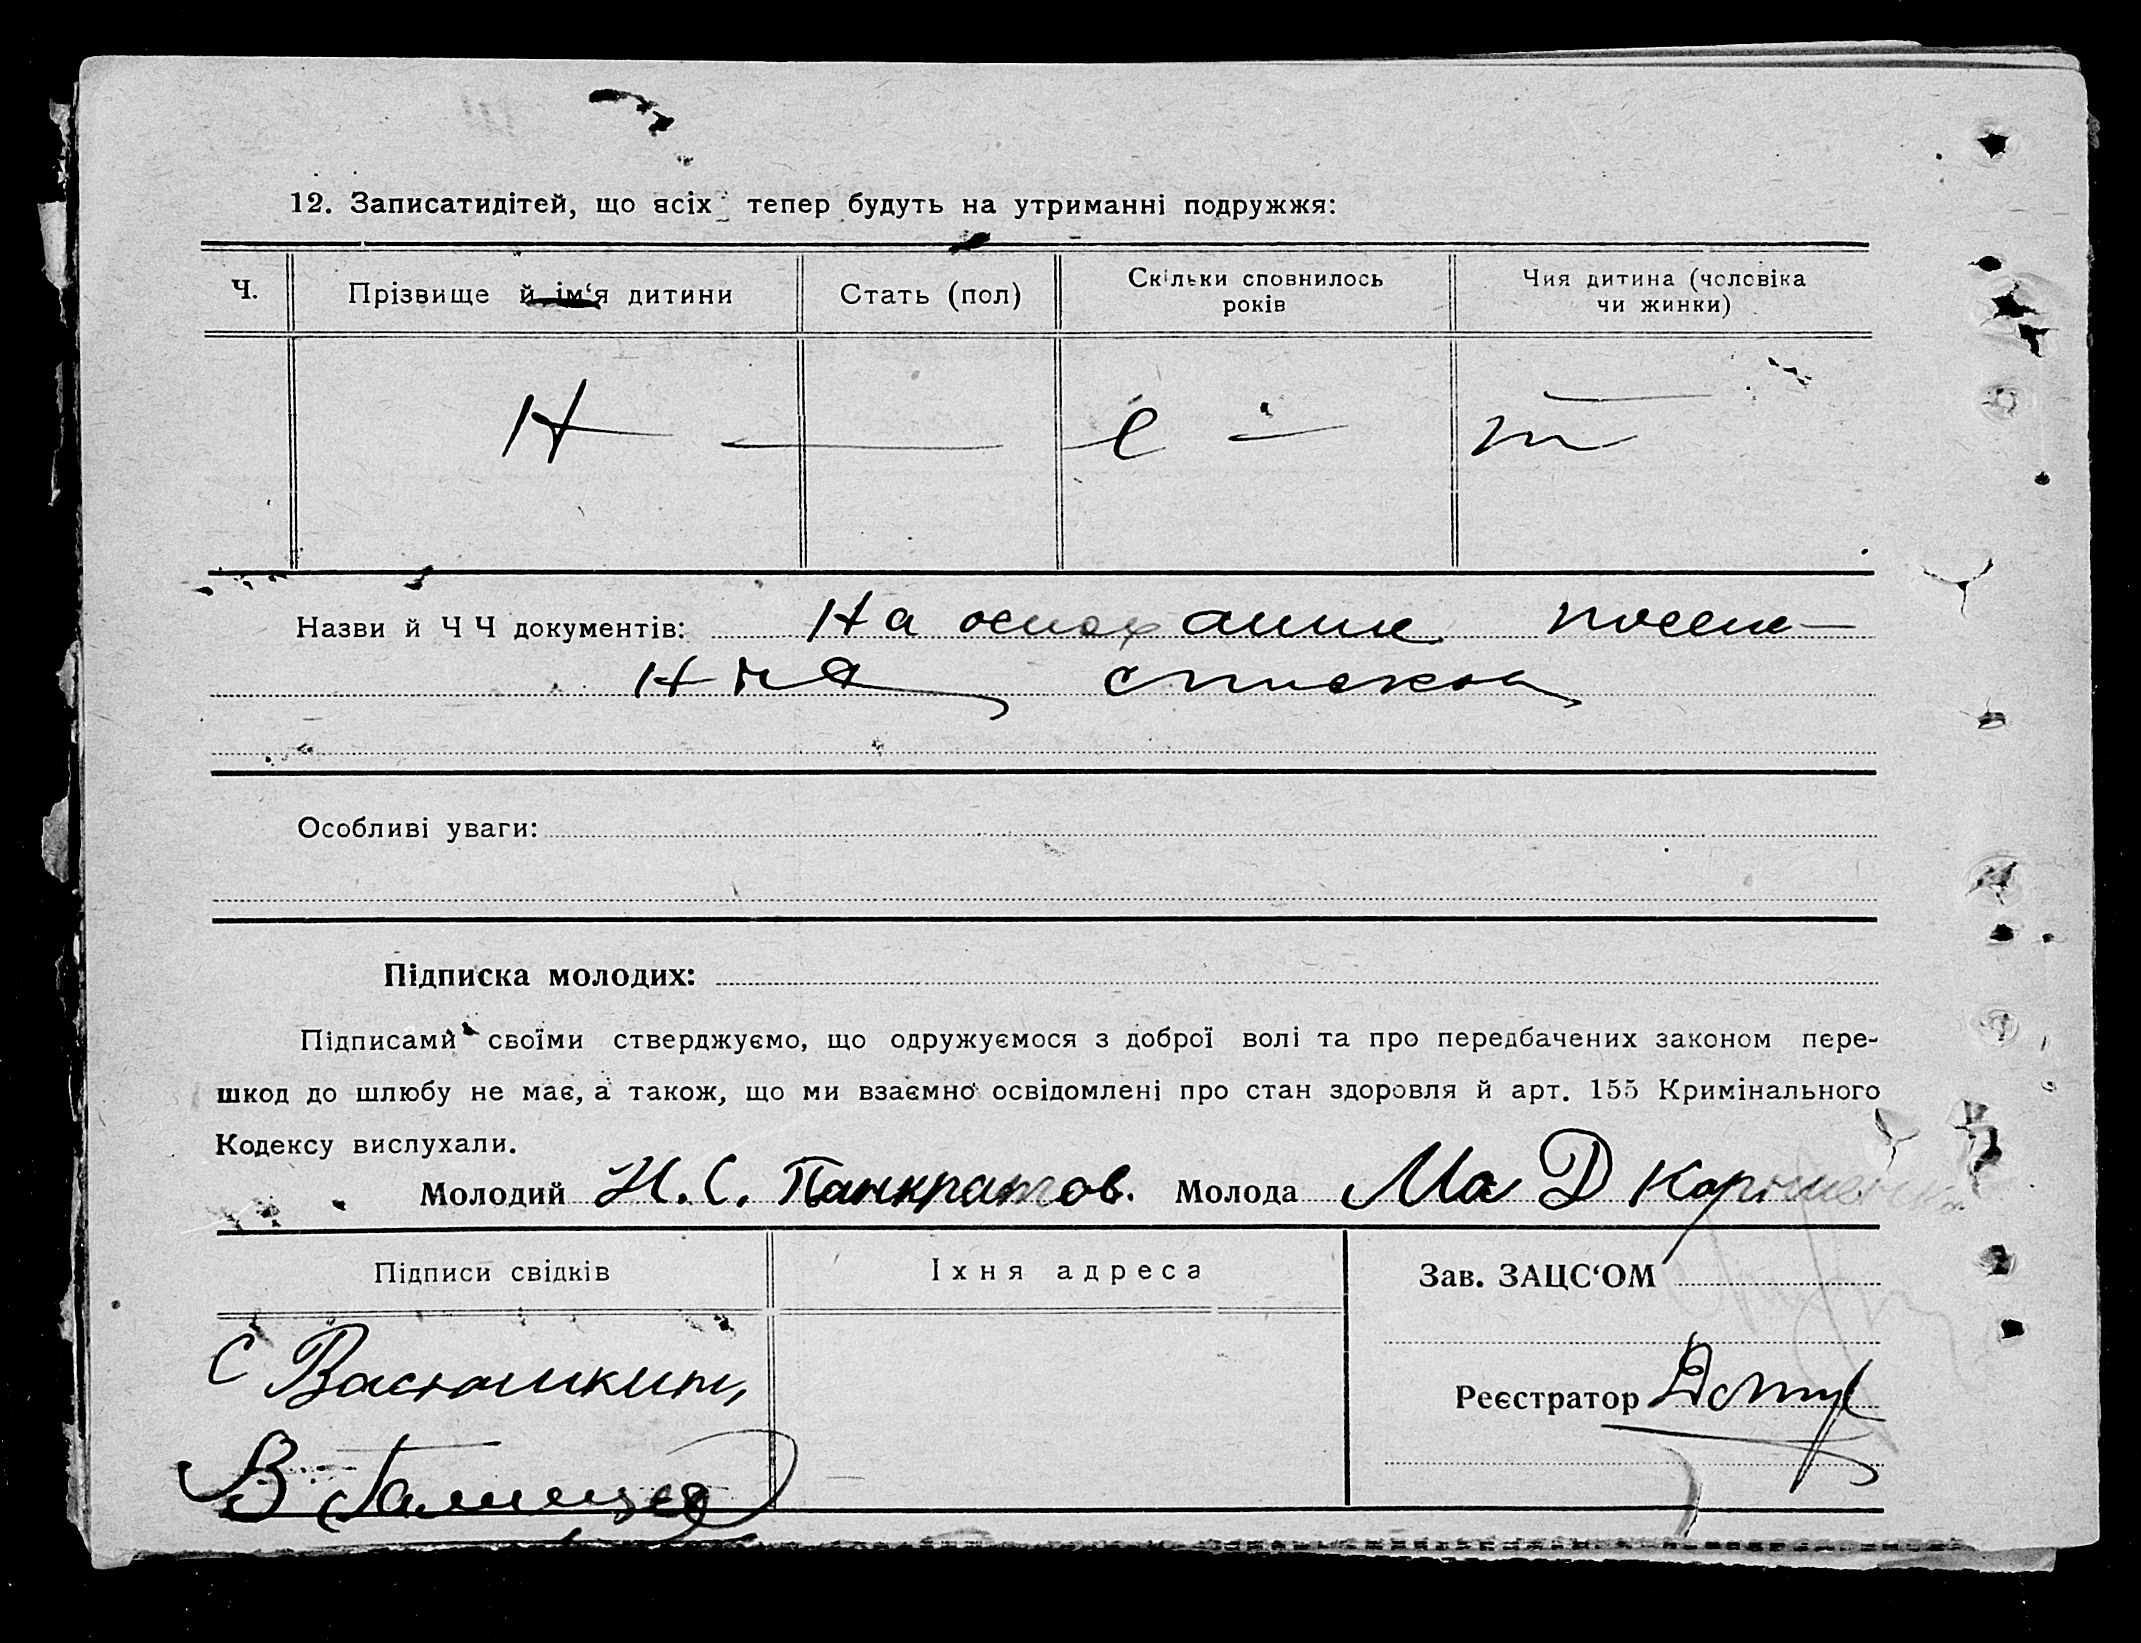 12. Записатидітей, що всіх тепер будуть на утриманні подружжя:
Ч. Прізвище й ім‘я дитини Стать (пол) Скільки сповнилось років Чия дитина (чоловіка чи жинки)
Н е т
Назви й Ч Ч документів: На основании посемей
ная списка
Особливі уваги:
Підписка молодих:
Підписами своїми стверджуємо, що одружуємося з доброї волі та про передбачених законом пере-
шкод до шлюбу не має, а також, що ми взаємно освідомлені про стан здоровля й арт. 155 Кримінального
Кодексу вислухали.
Молодий Н. С. Панкратов. Молода
Підписи свідків Їхня адреса Зав. ЗАЦС‘ОМ
С Васюшкин
Реєстратор